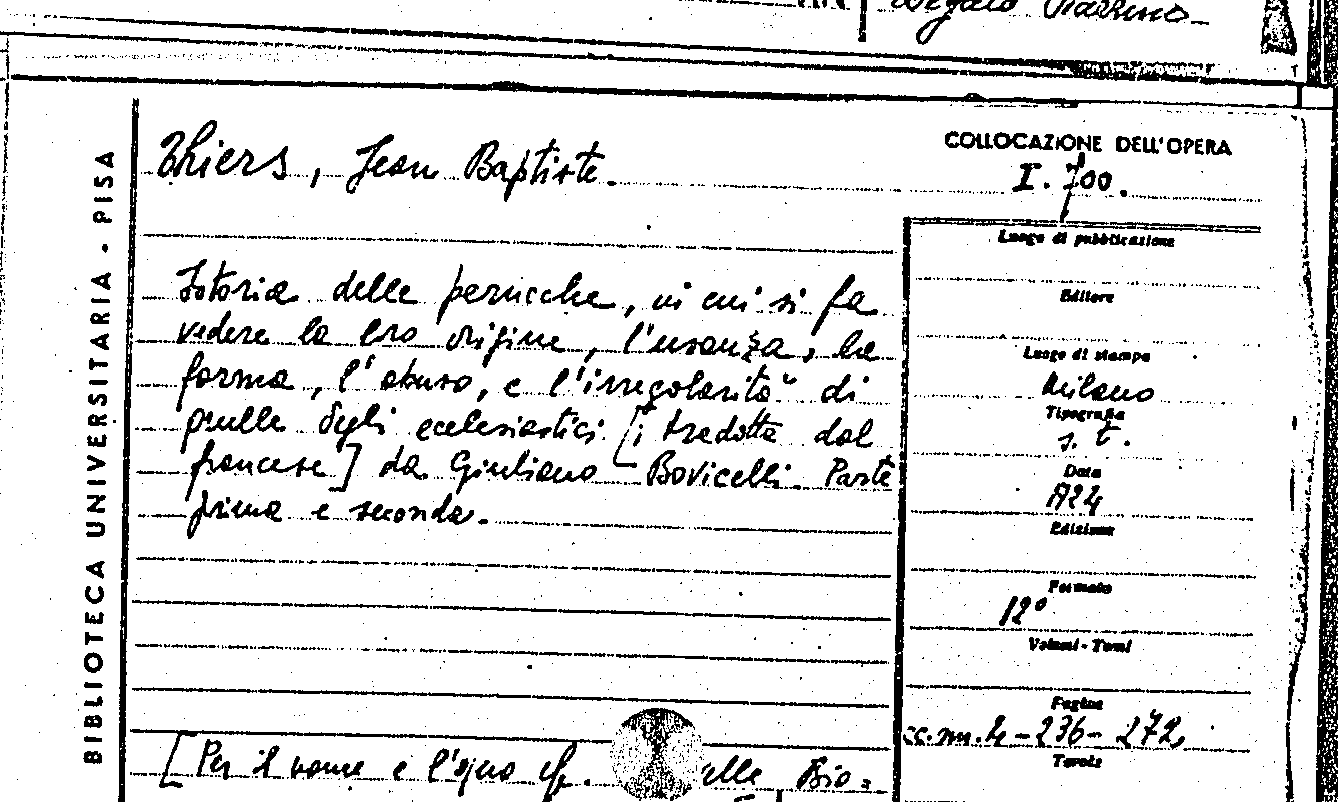 Regalo
BIBLIOTECA UNIVERSITARIA - PISA
Thiers, Jean Baptiste.
COLLOCAZIONE DELL'OPERA
I. 700.
Istoria delle perucche, in cui si fa
vedere la loro origine, l'usanza, la
forma, l'abuso, e l'irregolarità di
quelle degli ecclesiastici [; tradotta dal
francese] da Giuliano Bovicelli. Parte
prima e seconda.
Luogo di pubblicazione
Editore
Luogo di stampa
Milano
Tipografia
s. t.
Data
Edizione
Formato
12°
Volumi - Tomi
Pagine
cc.nn.4-236-272.
Tavole
[Per il nome e l' cfr. elle Bio=